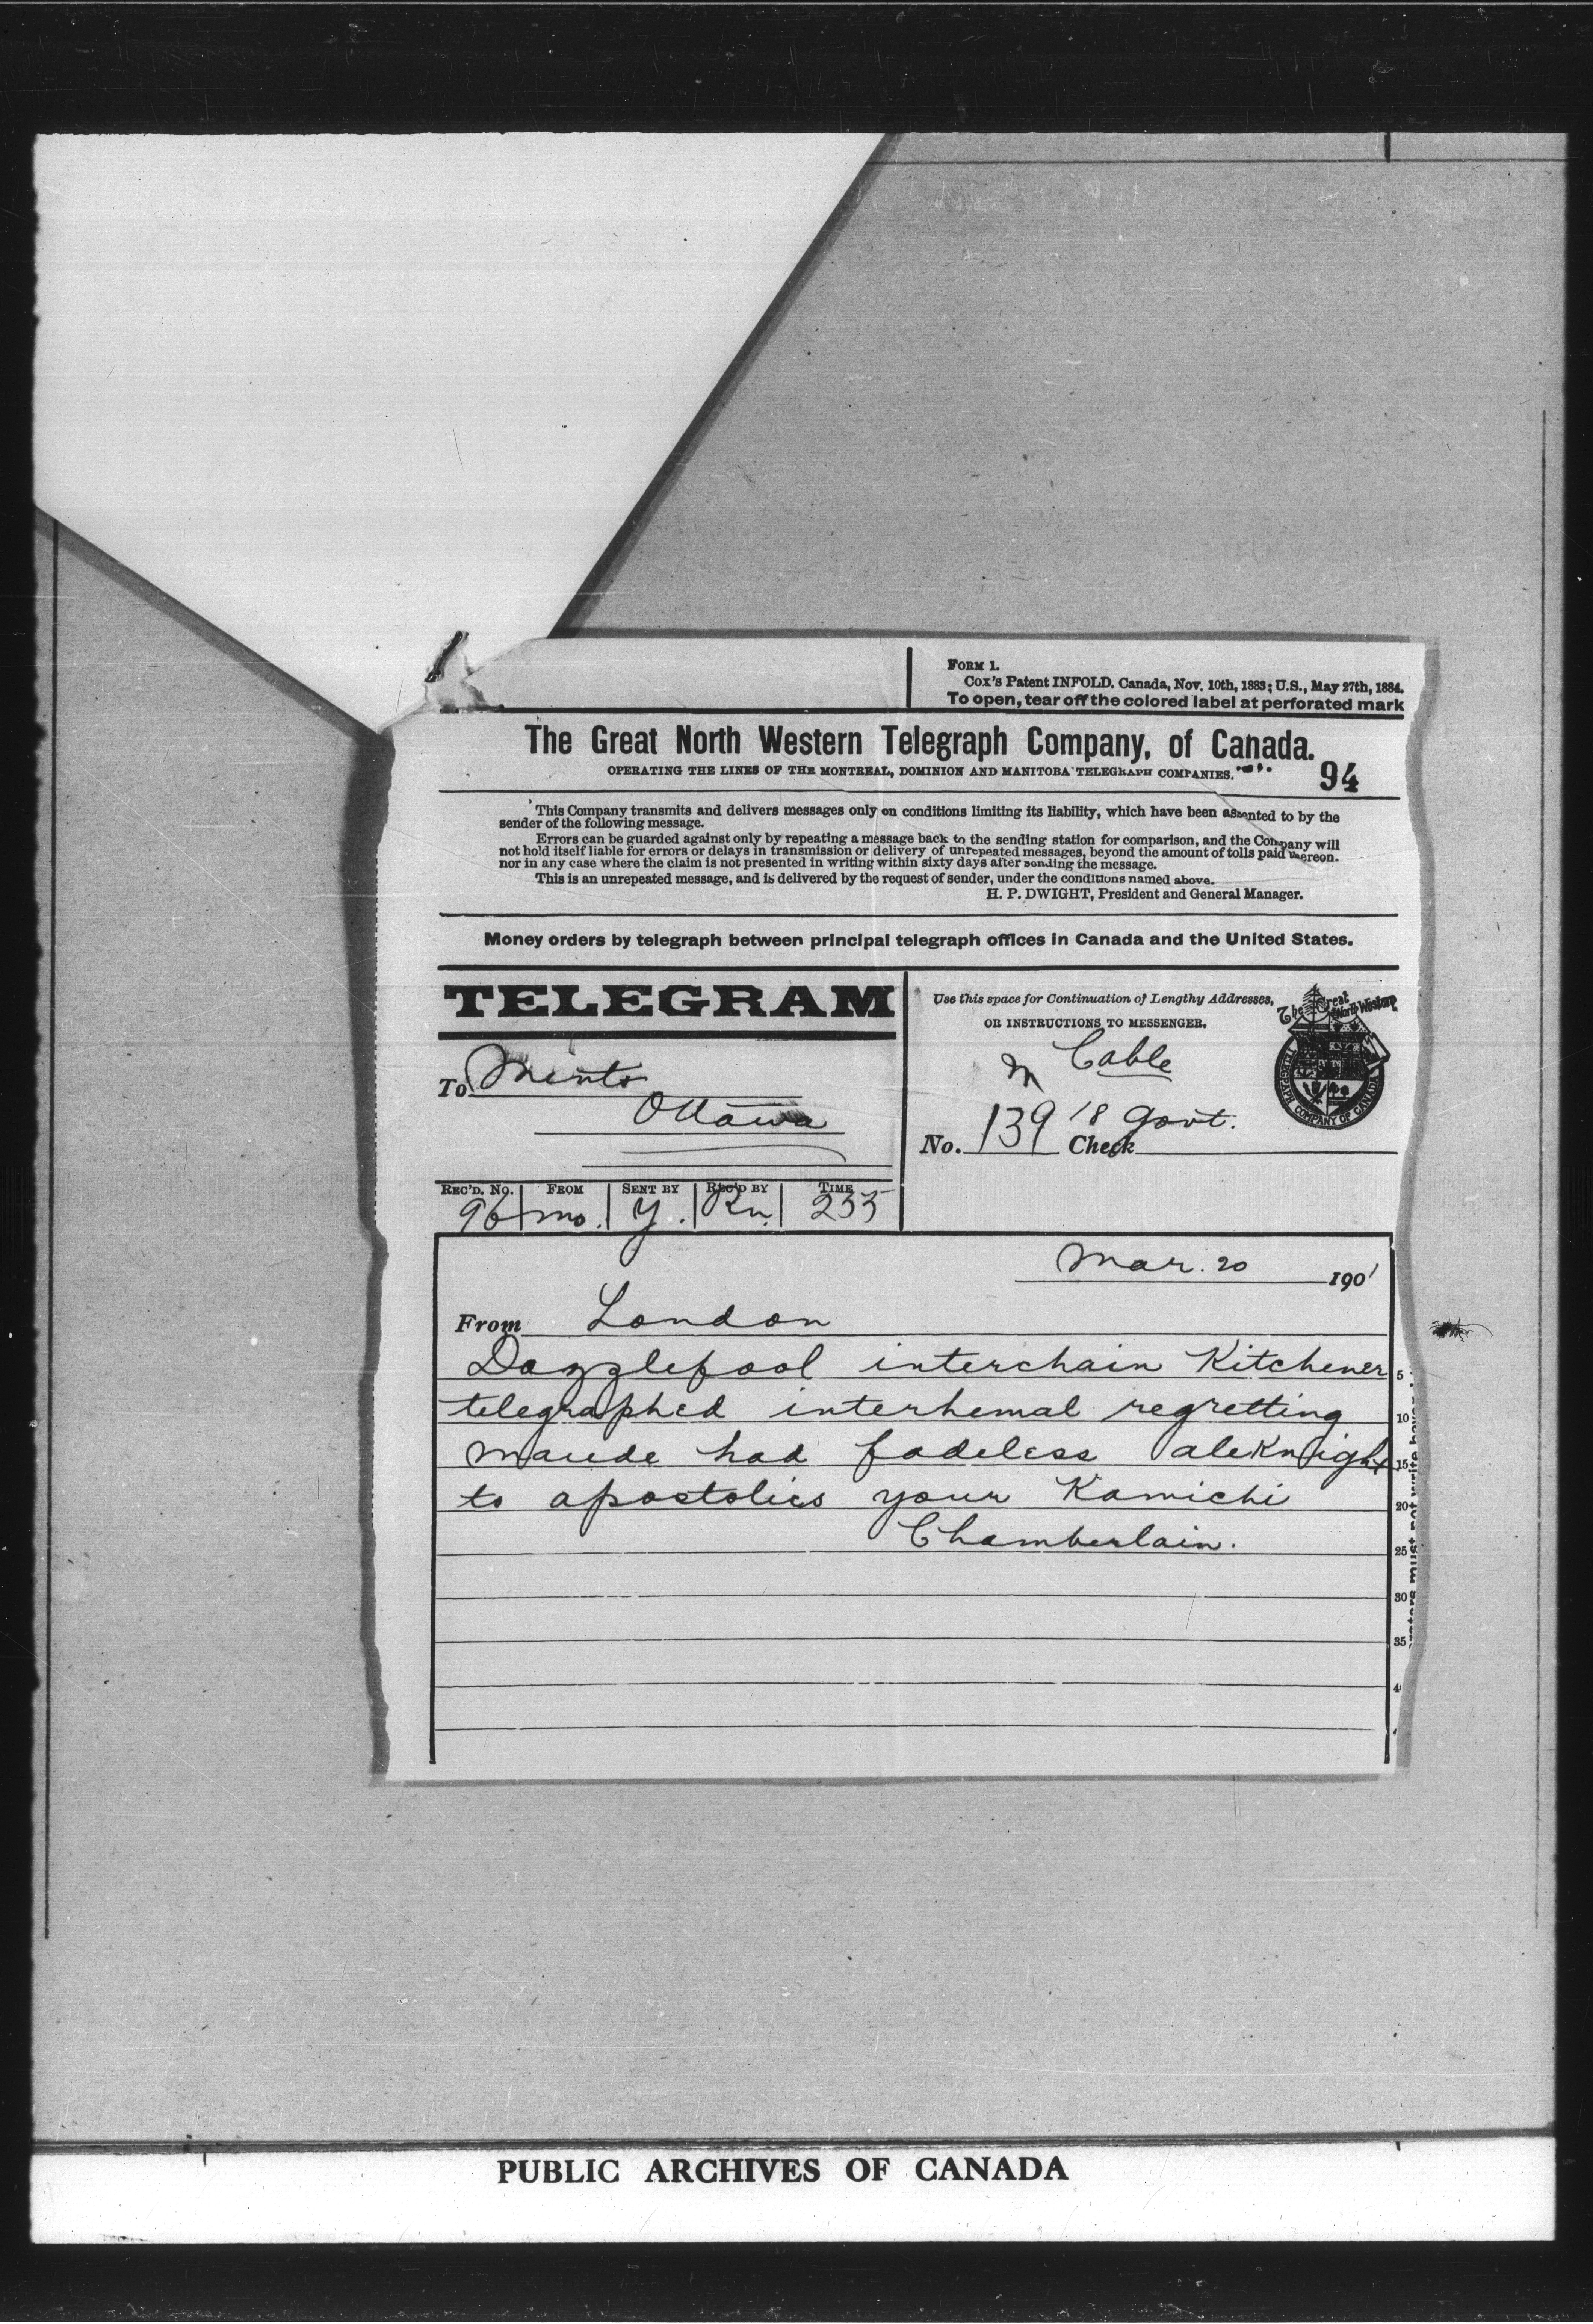 FORM 1.
Cox's Patent INFOLD. Canada, Nov. 10th, 1883; U.S., May 27th, 1884.
To open, tear off the colored label at perforated mark
The Great North Western Telegraph Company, of Canada.
OPERATING THE LINES OF THE MONTREAL, DOMINION AND MANITOBA TELEGRAPH COMPANIES.
94
This Company transmits and delivers messages only on conditions limiting its liability, which have been assented to by the
sender of the following message.
Errors can be guarded against only by repeating a message back to the sending station for comparison, and the Company will
not hold itself liable for errors or delays in transmission or delivery of unrepeated messages, beyond the amount of tolls paid thereon.
nor in any case where the claim is not presented in writing within sixty days after sending the message.
This is an unrepeated message, and is delivered by the request of sender, under the conditions named above.
H. P. DWIGHT, President and General Manager.
Money orders by telegraph between principal telegraph offices in Canada and the United States.
TELEGRAM
To Minto
Ottawa
Use this space for Continuation of Lengthy Addresses,
OR INSTRUCTIONS TO MESSENGER.
The Great North Western
TELEGRAPH COMPANY OF CANADA
M Cable
No. 139 Check 18 Govt.
REC'D. No. FROM SENT BY REC'D BY TIME
96 mo. Y. Rn. 235
Mar. 20 1901
From London
Dazzlefool interchain Kitchener 5
telegraphed interhemal regretting 10
Maude had fadeless aleknight 15
to apostolics your Kamichi 20
Chamberlain. 25
30
35
PUBLIC ARCHIVES OF CANADA